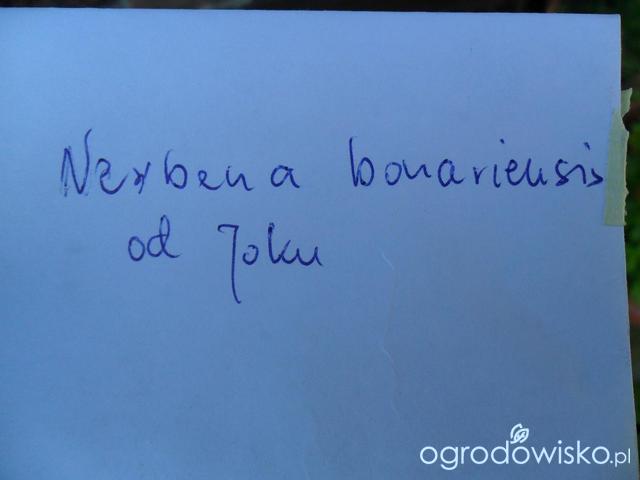 Verbena bonariensis
od Joku
ogrodowisko.pl